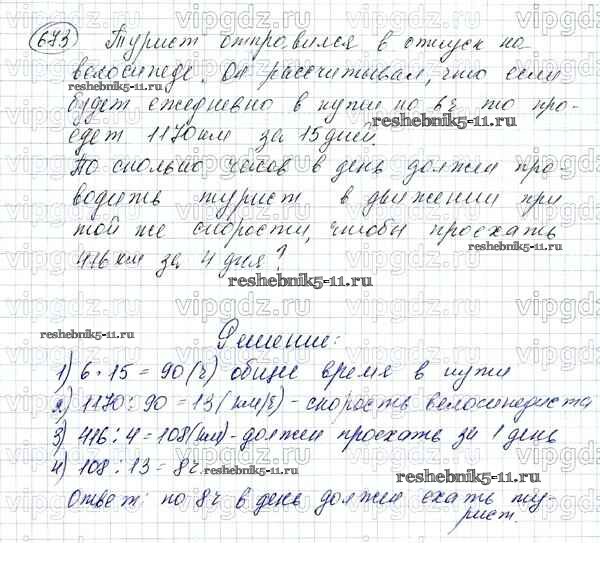 673 Турист отправился в отпуск на
велосипеде. Он рассчитывал, что если
будет ежедневно в пути по 6ч то про-
едет 1170км за 15дней.
По сколько часов в день должен про-
водить турист в движении при
той же скорости, чтобы проехать
416 км за 4 дня?
reshebnik5-11.ru
Решение:
1) 6·15=90(ч) общее время в пути
2) 1170:90=13(км/ч)-скорость велосипедиста
3) 416:4=108(км)-должен проехать за 1 день
4) 108:13=8ч.
Ответ: по 8ч в день должен ехать ту-
рист.
reshebnik5-11.ru
reshebnik5-11.ru
reshebnik5-11.ru
reshebnik5-11.ru
reshebnik5-11.ru
reshebnik5-11.ru
vipgdz.ru